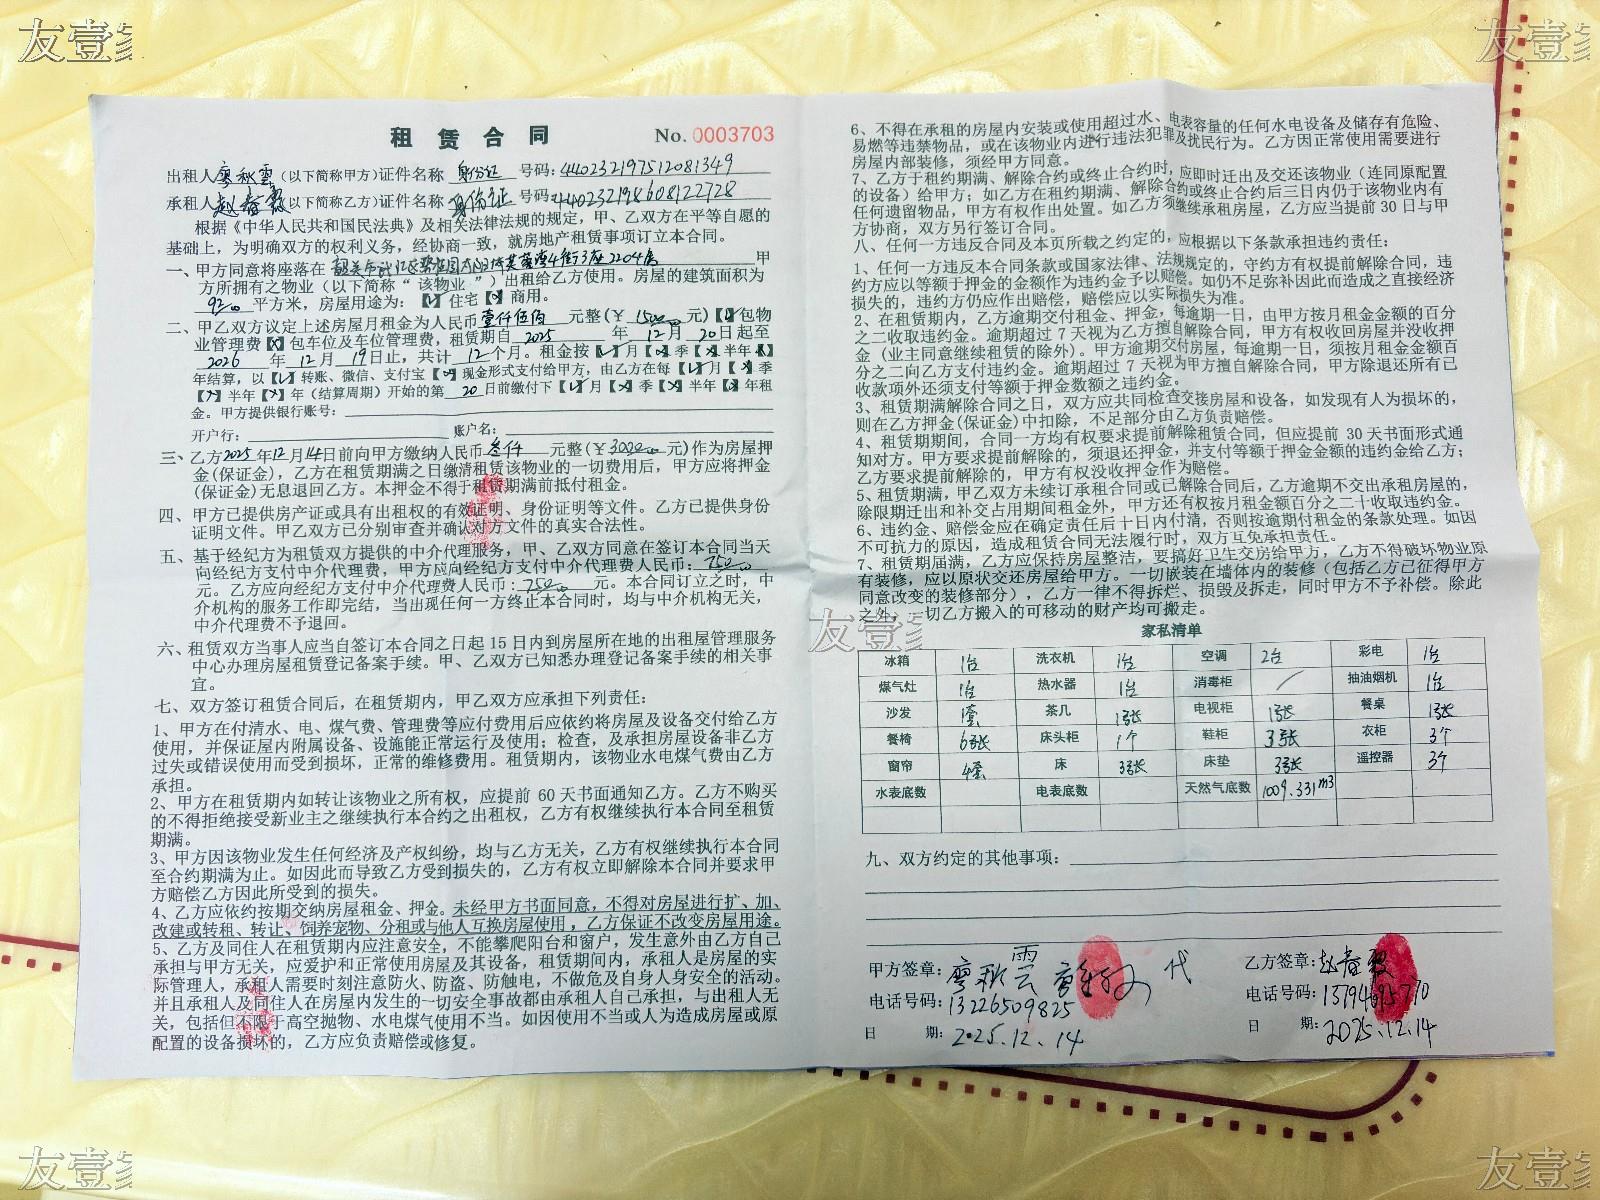 友壹家
友壹家
租 赁 合 同 No. 0003703
出租人廖秋雲(以下简称甲方)证件名称 身份证 号码:440232197512081349
承租人赵春毅(以下简称乙方)证件名称 身份证 号码:440232198608122728
根据《中华人民共和国民法典》及相关法律法规的规定，甲、乙双方在平等自愿的
基础上，为明确双方的权利义务，经协商一致，就房地产租赁事项订立本合同。
一、甲方同意将座落在 韶关市武江区碧桂园太阳城芙蓉湾4街3座2204房 甲
方所拥有之物业（以下简称“ 该物业 ”）出租给乙方使用。房屋的建筑面积为
92 平方米，房屋用途为：【√】住宅【×】商用。
二、甲乙双方议定上述房屋月租金为人民币 壹仟伍佰 元整(￥ 1500 元)【√】包物
业管理费【×】包车位及车位管理费，租赁期自 2025 年 12 月 20 日起至
2026 年 12 月 19 日止，共计 12 个月。租金按【√】月【×】季【×】半年【×】
年结算，以【√】转账、微信、支付宝【×】现金形式支付给甲方，由乙方在每【√】月【×】季
【×】半年【×】年（结算周期）开始的第 20 日前缴付下【√】月【×】季【×】半年【×】年租
金。甲方提供银行账号：
开户行： 账户名：
三、乙方2025年12月14日前向甲方缴纳人民币 叁仟 元整(￥3000 元)作为房屋押
金(保证金)，乙方在租赁期满之日缴清租赁该物业的一切费用后，甲方应将押金
(保证金)无息退回乙方。本押金不得于租赁期满前抵付租金。
四、甲方已提供房产证或具有出租权的有效证明、身份证明等文件。乙方已提供身份
证明文件。甲乙双方已分别审查并确认对方文件的真实合法性。
五、基于经纪方为租赁双方提供的中介代理服务，甲、乙双方同意在签订本合同当天
向经纪方支付中介代理费，甲方应向经纪方支付中介代理费人民币：750
元。乙方应向经纪方支付中介代理费人民币：750 元。本合同订立之时，中
介机构的服务工作即完结，当出现任何一方终止本合同时，均与中介机构无关，
中介代理费不予退回。
六、租赁双方当事人应当自签订本合同之日起 15 日内到房屋所在地的出租屋管理服务
中心办理房屋租赁登记备案手续。甲、乙双方已知悉办理登记备案手续的相关事
宜。
七、双方签订租赁合同后，在租赁期内，甲乙双方应承担下列责任：
1、甲方在付清水、电、煤气费、管理费等应付费用后应依约将房屋及设备交付给乙方
使用，并保证屋内附属设备、设施能正常运行及使用；检查，及承担房屋设备非乙方
过失或错误使用而受到损坏，正常的维修费用。租赁期内，该物业水电煤气费由乙方
承担。
2、甲方在租赁期内如转让该物业之所有权，应提前 60 天书面通知乙方。乙方不购买
的不得拒绝接受新业主之继续执行本合约之出租权，乙方有权继续执行本合同至租赁
期满。
3、甲方因该物业发生任何经济及产权纠纷，均与乙方无关，乙方有权继续执行本合同
至合约期满为止。如因此而导致乙方受到损失的，乙方有权立即解除本合同并要求甲
方赔偿乙方因此所受到的损失。
4、乙方应依约按期交纳房屋租金、押金。未经甲方书面同意，不得对房屋进行扩、加、
改建或转租、转让、饲养宠物、分租或与他人互换房屋使用，乙方保证不改变房屋用途。
5、乙方及同住人在租赁期内应注意安全，不能攀爬阳台和窗户，发生意外由乙方自己
承担与甲方无关，应爱护和正常使用房屋及其设备，租赁期间内，承租人是房屋的实
际管理人，承租人需要时刻注意防火、防盗、防触电，不做危及自身人身安全的活动。
并且承租人及同住人在房屋内发生的一切安全事故都由承租人自己承担，与出租人无
关，包括但不限于高空抛物、水电煤气使用不当。如因使用不当或人为造成房屋或原
配置的设备损坏的，乙方应负责赔偿或修复。
6、不得在承租的房屋内安装或使用超过水、电表容量的任何水电设备及储存有危险、
易燃等违禁物品，或在该物业内进行违法犯罪及扰民行为。乙方因正常使用需要进行
房屋内部装修，须经甲方同意。
7、乙方于租约期满、解除合约或终止合约时，应即时迁出及交还该物业（连同原配置
的设备）给甲方；如乙方在租约期满、解除合约或终止合约后三日内仍于该物业内有
任何遗留物品，甲方有权作出处置。如乙方须继续承租房屋，乙方应当提前 30 日与甲
方协商，双方另行签订合同。
八、任何一方违反合同及本页所载之约定的，应根据以下条款承担违约责任：
1、任何一方违反本合同条款或国家法律、法规规定的，守约方有权提前解除合同，违
约方应以等额于押金的金额作为违约金予以赔偿。如仍不足弥补因此而造成之直接经济
损失的，违约方仍应作出赔偿，赔偿应以实际损失为准。
2、在租赁期内，乙方逾期交付租金、押金，每逾期一日，由甲方按月租金金额的百分
之二收取违约金。逾期超过 7 天视为乙方擅自解除合同，甲方有权收回房屋并没收押
金（业主同意继续租赁的除外）。甲方逾期交付房屋，每逾期一日，须按月租金金额百
分之二向乙方支付违约金。逾期超过 7 天视为甲方擅自解除合同，甲方除退还所有已
收款项外还须支付等额于押金数额之违约金。
3、租赁期满解除合同之日，双方应共同检查交接房屋和设备，如发现有人为损坏的，
则在乙方押金(保证金)中扣除，不足部分由乙方负责赔偿。
4、租赁期期间，合同一方均有权要求提前解除租赁合同，但应提前 30 天书面形式通
知对方。甲方要求提前解除的，须退还押金，并支付等额于押金金额的违约金给乙方；
乙方要求提前解除的，甲方有权没收押金作为赔偿。
5、租赁期满，甲乙双方未续订承租合同或已解除合同后，乙方逾期不交出承租房屋的，
除限期迁出和补交占用期间租金外，甲方还有权按月租金额百分之二十收取违约金。
6、违约金、赔偿金应在确定责任后十日内付清，否则按逾期付租金的条款处理。如因
不可抗力的原因，造成租赁合同无法履行时，双方互免承担责任。
7、租赁届满，乙方应保持房屋整洁，要搞好卫生交房给甲方，乙方不得破坏物业原
有装修，应以原状交还房屋给甲方。一切嵌装在墙体内的装修（包括乙方已征得甲方
同意改变的装修部分），乙方一律不得拆烂、损毁及拆走，同时甲方不予补偿。除此
之外，一切乙方搬入的可移动的财产均可搬走。
友壹家
家私清单
冰箱 1台 洗衣机 1台 空调 2台 彩电 1台
煤气灶 1台 热水器 1台 消毒柜 ／ 抽油烟机 1台
沙发 1套 茶几 1张 电视柜 1张 餐桌 1张
餐椅 6张 床头柜 1个 鞋柜 3张 衣柜 3个
窗帘 4套 床 3张 床垫 3张 遥控器 3个
水表底数 电表底数 天然气底数 1009.331m3
九、双方约定的其他事项：
甲方签章：廖秋雲 代
电话号码：13226509825
日 期：2025.12.14
乙方签章：赵春毅
电话号码：13794695770
日 期：2025.12.14
友壹家
友壹家